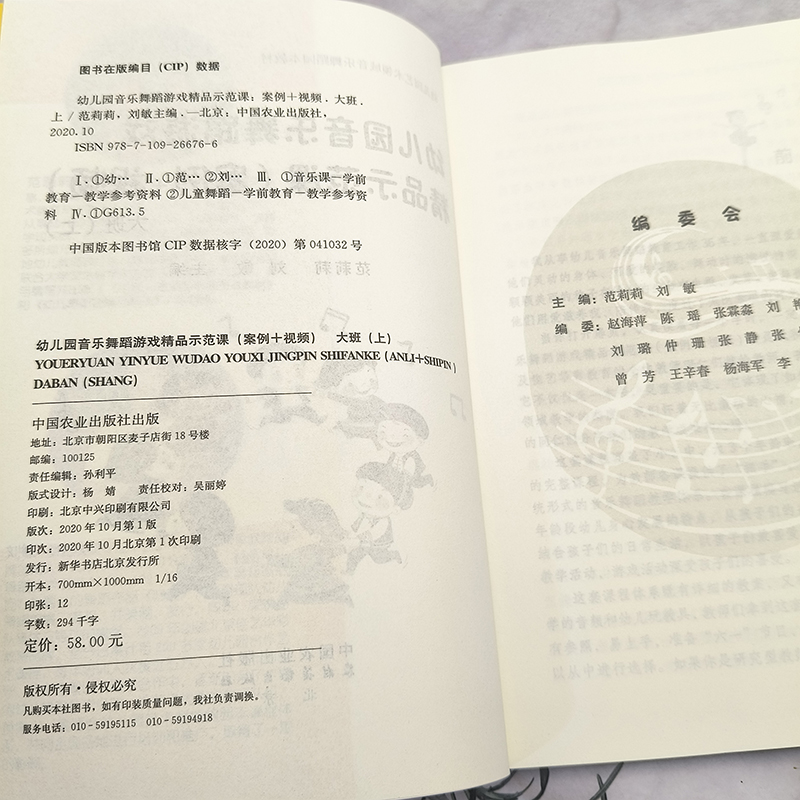 图书在版编目（CIP）数据
幼儿园音乐舞蹈游戏精品示范课：案例＋视频．大班．
上／范莉莉，刘敏主编．—北京：中国农业出版社，
2020.10
ISBN 978-7-109-26676-6
Ⅰ．①幼… Ⅱ．①范…②刘… Ⅲ．①音乐课－学前
教育－教学参考资料②儿童舞蹈－学前教育－教学参考资
料 Ⅳ．①G613.5
中国版本图书馆 CIP 数据核字（2020）第 041032 号
幼儿园音乐舞蹈游戏精品示范课（案例＋视频） 大班（上）
YOUERYUAN YINYUE WUDAO YOUXI JINGPIN SHIFANKE (ANLI+SHIPIN)
DABAN (SHANG)
中国农业出版社出版
地址：北京市朝阳区麦子店街 18 号楼
邮编：100125
责任编辑：孙利平
版式设计：杨 婧 责任校对：吴丽婷
印刷：北京中兴印刷有限公司
版次：2020 年 10 月第 1 版
印次：2020 年 10 月北京第 1 次印刷
发行：新华书店北京发行所
开本：700mm×1000mm 1/16
印张：12
字数：294 千字
定价：58.00 元
版权所有·侵权必究
凡购买本社图书，如有印装质量问题，我社负责调换。
服务电话：010－59195115 010－59194918
编 委 会
主 编：范莉莉 刘 敏
编 委：赵海萍 陈 瑶 张霖淼 刘
刘 璐 仲 珊 张 静 张
曾 芳 王辛春 杨海军 李